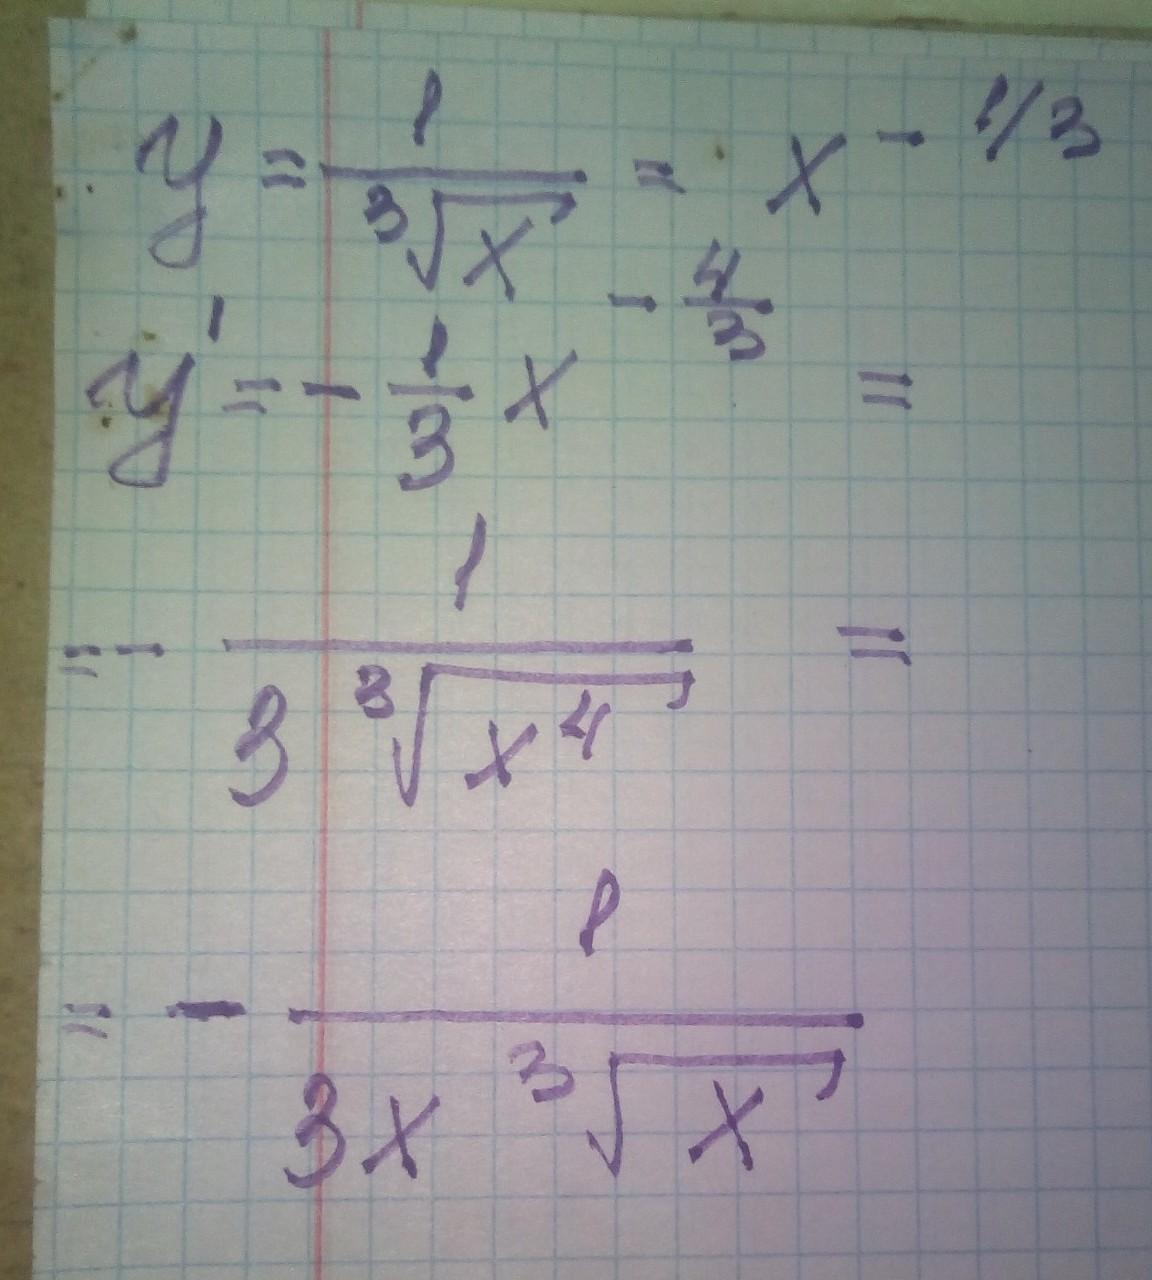 y = 1/∛x = x^(-1/3)
y' = - 1/3 x^(-4/3) =
= - 1/(3 ∛(x^4)) =
= - 1/(3x ∛x)